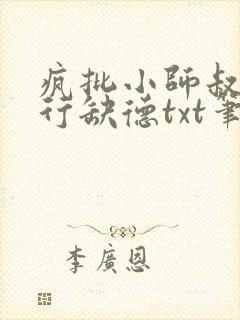 疯批小師叔
行缺德txt筆
李廣恩